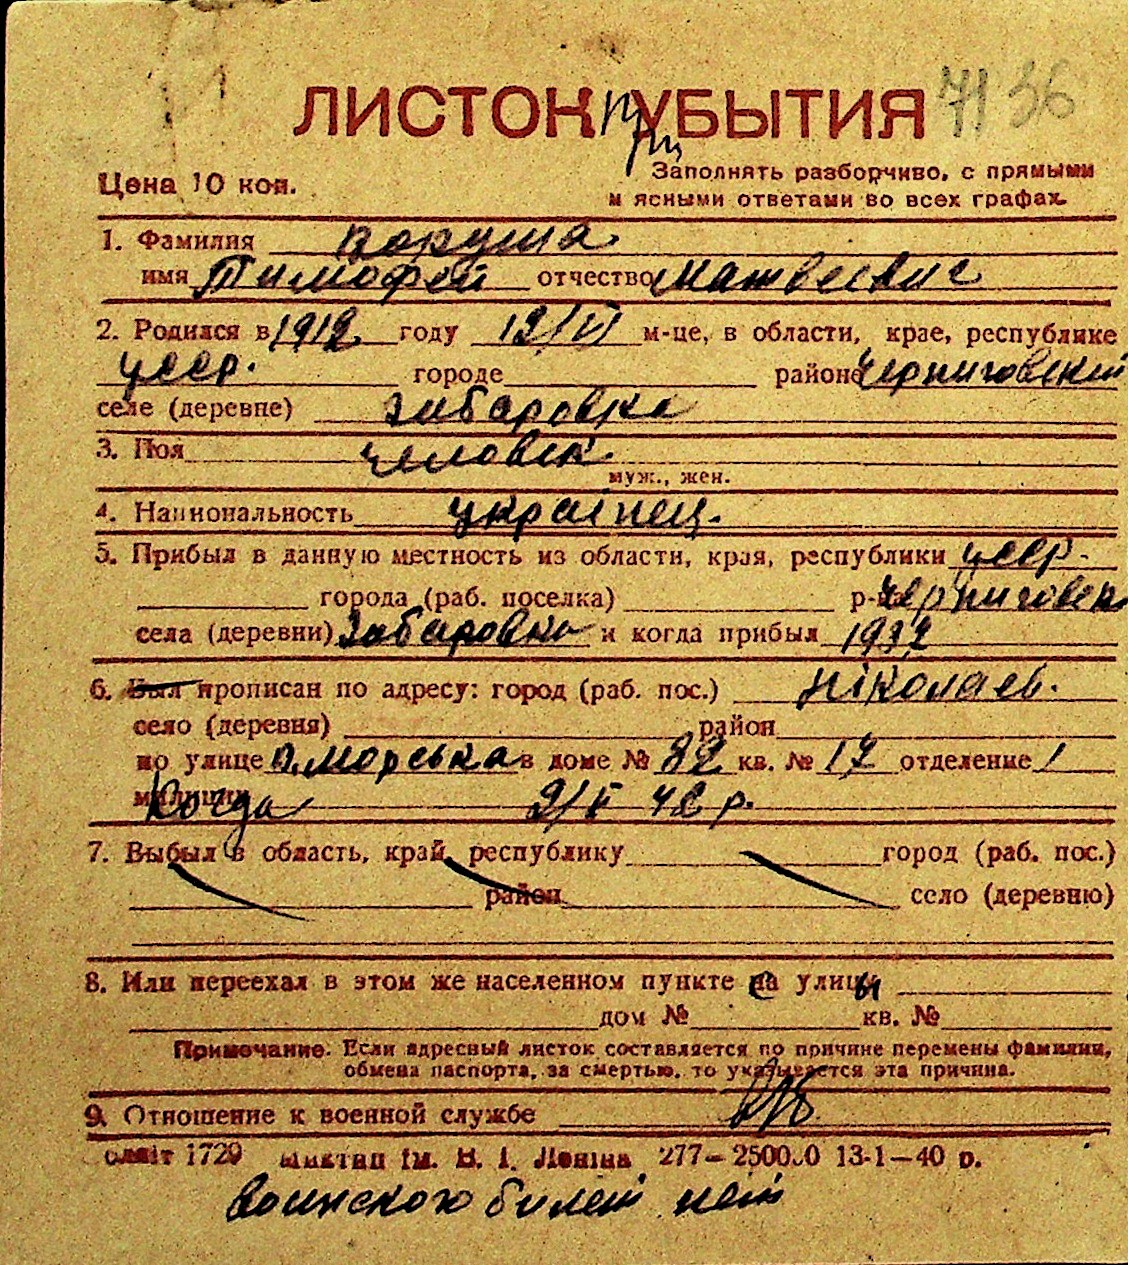 ЛИСТОК при УБЫТИЯ 7136
Цена 10 коп.
Заполнять разборчиво, с прямыми
и ясными ответами во всех графах.
1. Фамилия Коруша
имя Тимофей отчество Матвеевич
2. Родился в 1912 году 12/VI м-це, в области, крае, республике
усср. городе районе Черниговский
селе (деревне) Забаровка
3. Пол человек
муж., жен.
4. Национальность українец.
5. Прибыл в данную местность из области, края, республики усср.
города (раб. поселка) р-на Черниговск
села (деревни) Забаровка и когда прибыл 1932
6. Был прописан по адресу: город (раб. пос.) Ніколаев.
село (деревня) район
по улице В. Морська в доме № 82 кв. № 17 отделение 1
милиции Когда 2/V 42 р.
7. Выбыл в область, край, республику город (раб. пос.)
район село (деревню)
8. Или переехал в этом же населенном пункте с улицы
дом № кв. №
Примечание. Если адресный листок составляется по причине перемены фамилии,
обмена паспорта, за смертью, то указывается эта причина.
9. Отношение к военной службе
1729 ім. В. І. Леніна 277—250000 13-1—40 р.
воинского билет нет